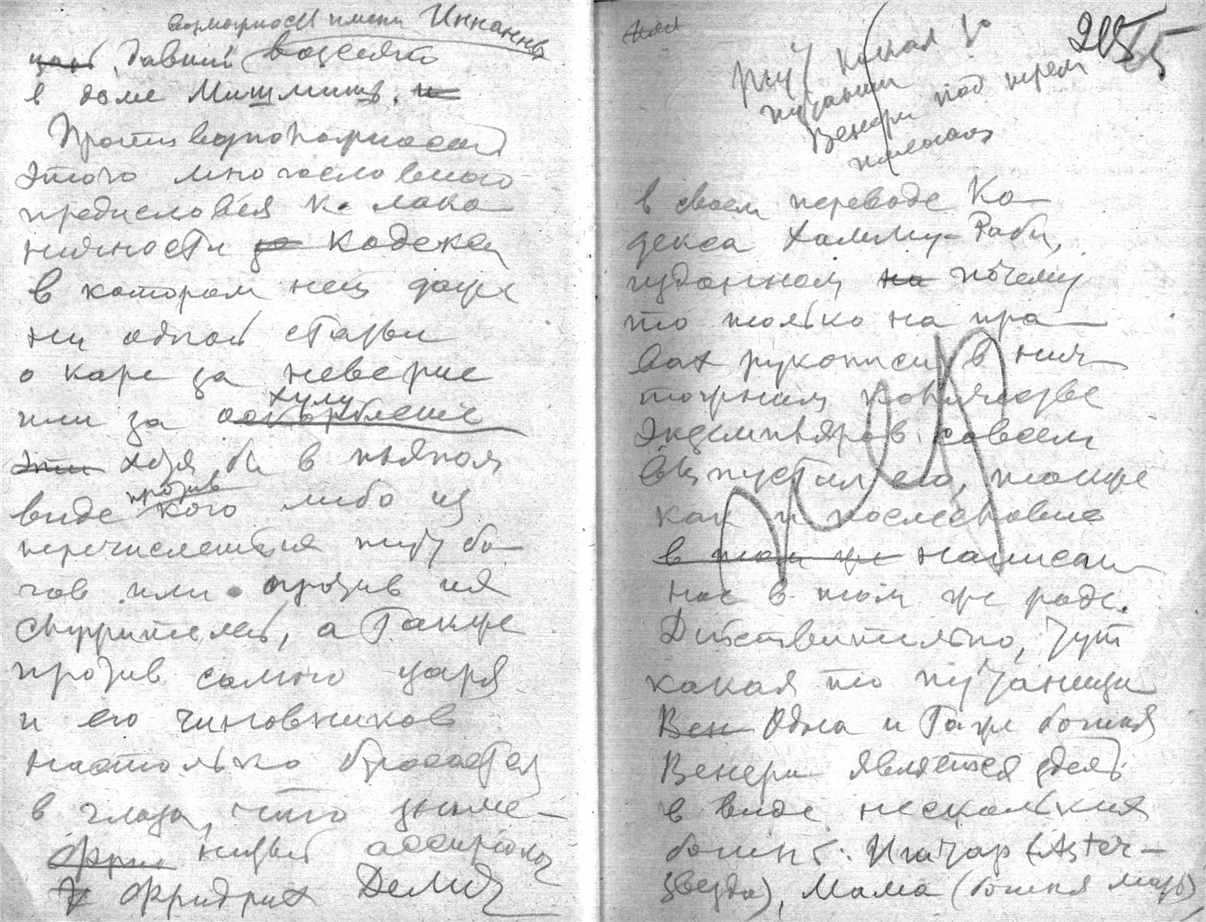 имени Иннанны
давший
в доме Мишмиш.
Противоположность
этого многословного
предисловия к лако
ничности Кодекса
в котором нет даже
ни одной статьи
о каре за неверие
или за оскорбление хулу
эти хотя бы в пьяном
виде против кого либо из
перечисленных тут бо
гов или против их
служителей, а также
против самого царя
и его чиновников
настолько бросается
в глаза, что знаме-
нитый ассириолог
Фридрих Делич
205
тут какая то
путаница
Венера под тремя
в своем переводе Ко
декса Хамму-Раби,
изданном на почему
то только на пра
вах рукописи в нич
тожном количестве
экземпляров, совсем
выпустил его, также
как и послесловие
в том же написан
ное в том же роде.
Действительно, тут
какая то путаница
Вен Одна и таже богиня
Венера является здесь
в виде нескольких
богинь: Иштар (Aster-
звезда), Мама (богиня мать)